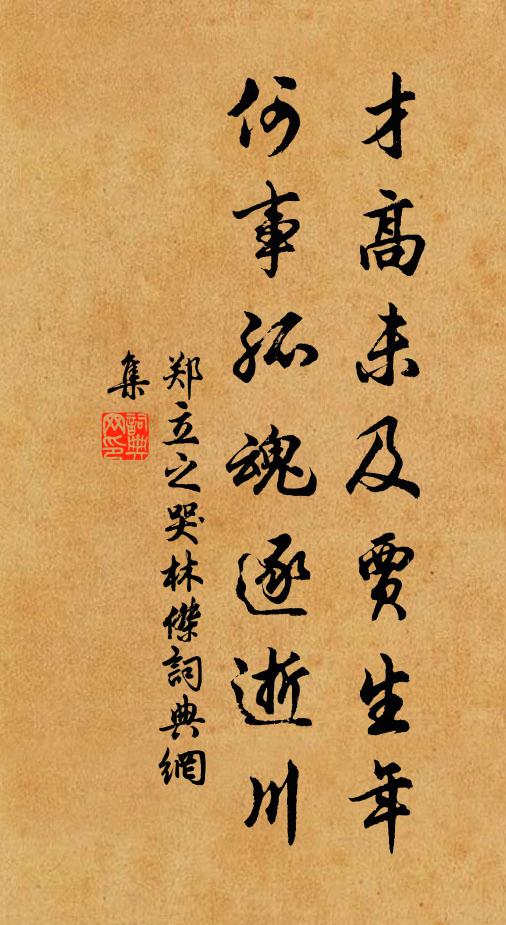 才高未及贾生年
何事孤魂逐逝川
郑立之哭林傑詞典網
集
詞典
网印